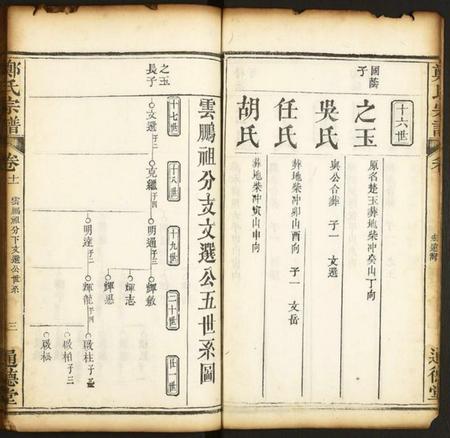 國蔭
子
十六世
之玉
原名楚玉葬地柴冲癸山丁向
吳氏
與公合葬 子一 文選
任氏
葬地柴冲卯山酉向 子一 文岳
胡氏
葬地柴冲寅山申向
通德堂
雲鵬祖分支文選公五世系圖
十七世
十八世
十九世
二十世
廿一世
之玉
長子
文選 子二
克繼 子四
明通 子三
明達 子二
輝敏
輝志
輝恩
輝龍 子四
啟柱 子
啟柏 子三
啟松
鄭氏宗譜
卷十
雲鵬祖分下文選公世系
三
通德堂